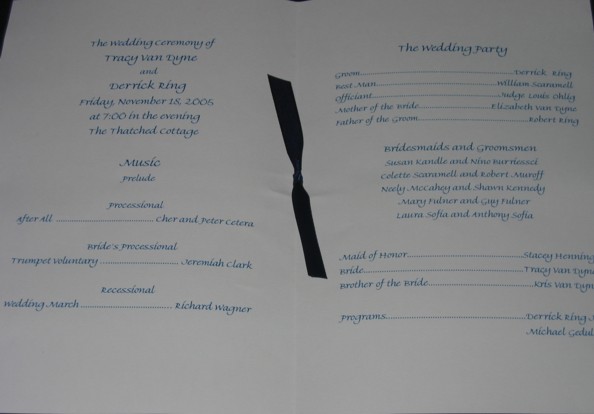 The Wedding Ceremony of
Tracy Van Dyne
and
Derrick Ring
Friday, November 18, 2005
at 7:00 in the evening
The Thatched Cottage
Music
Prelude
Processional
After All ................................ Cher and Peter Cetera
Bride's Processional
Trumpet Voluntary ......................... Jeremiah Clark
Recessional
Wedding March .............................. Richard Wagner
The Wedding Party
Groom....................................................Derrick Ring
Best Man........................................William Scaramell
Officiant..........................................Judge Louis Ohlig
Mother of the Bride........................Elizabeth Van Dyne
Father of the Groom....................................Robert Ring
Bridesmaids and Groomsmen
Susan Kandle and Nino Burriessci
Colette Scaramell and Robert Muroff
Neely McCahey and Shawn Kennedy
Mary Fulner and Guy Fulner
Laura Sofia and Anthony Sofia
Maid of Honor......................................Stacey Henning
Bride....................................................Tracy Van Dyne
Brother of the Bride..................................Kris Van Dyne
Programs.............................................Derrick Ring
Michael